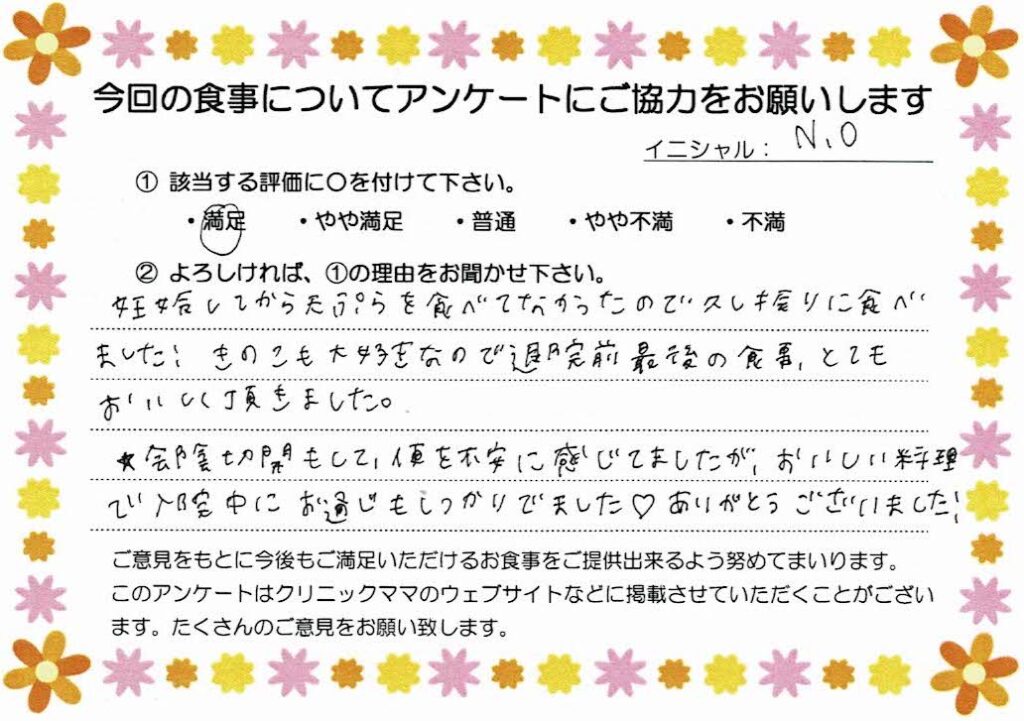 今回の食事についてアンケートにご協力をお願いします
イニシャル： N.O
① 該当する評価に〇を付けて下さい。
・満足 ・やや満足 ・普通 ・やや不満 ・不満
② よろしければ、①の理由をお聞かせ下さい。
妊娠してから天ぷらを食べてなかったので久し振りに食べ
ました! きのこも大好きなので退院前最後の食事、とても
おいしく頂きました。
★会陰切開もして、便を不安に感じてましたが、おいしい料理
で入院中にお通じもしっかりでました♡ありがとうございました!
ご意見をもとに今後もご満足いただけるお食事をご提供出来るよう努めてまいります。
このアンケートはクリニックママのウェブサイトなどに掲載させていただくことがござい
ます。たくさんのご意見をお願い致します。